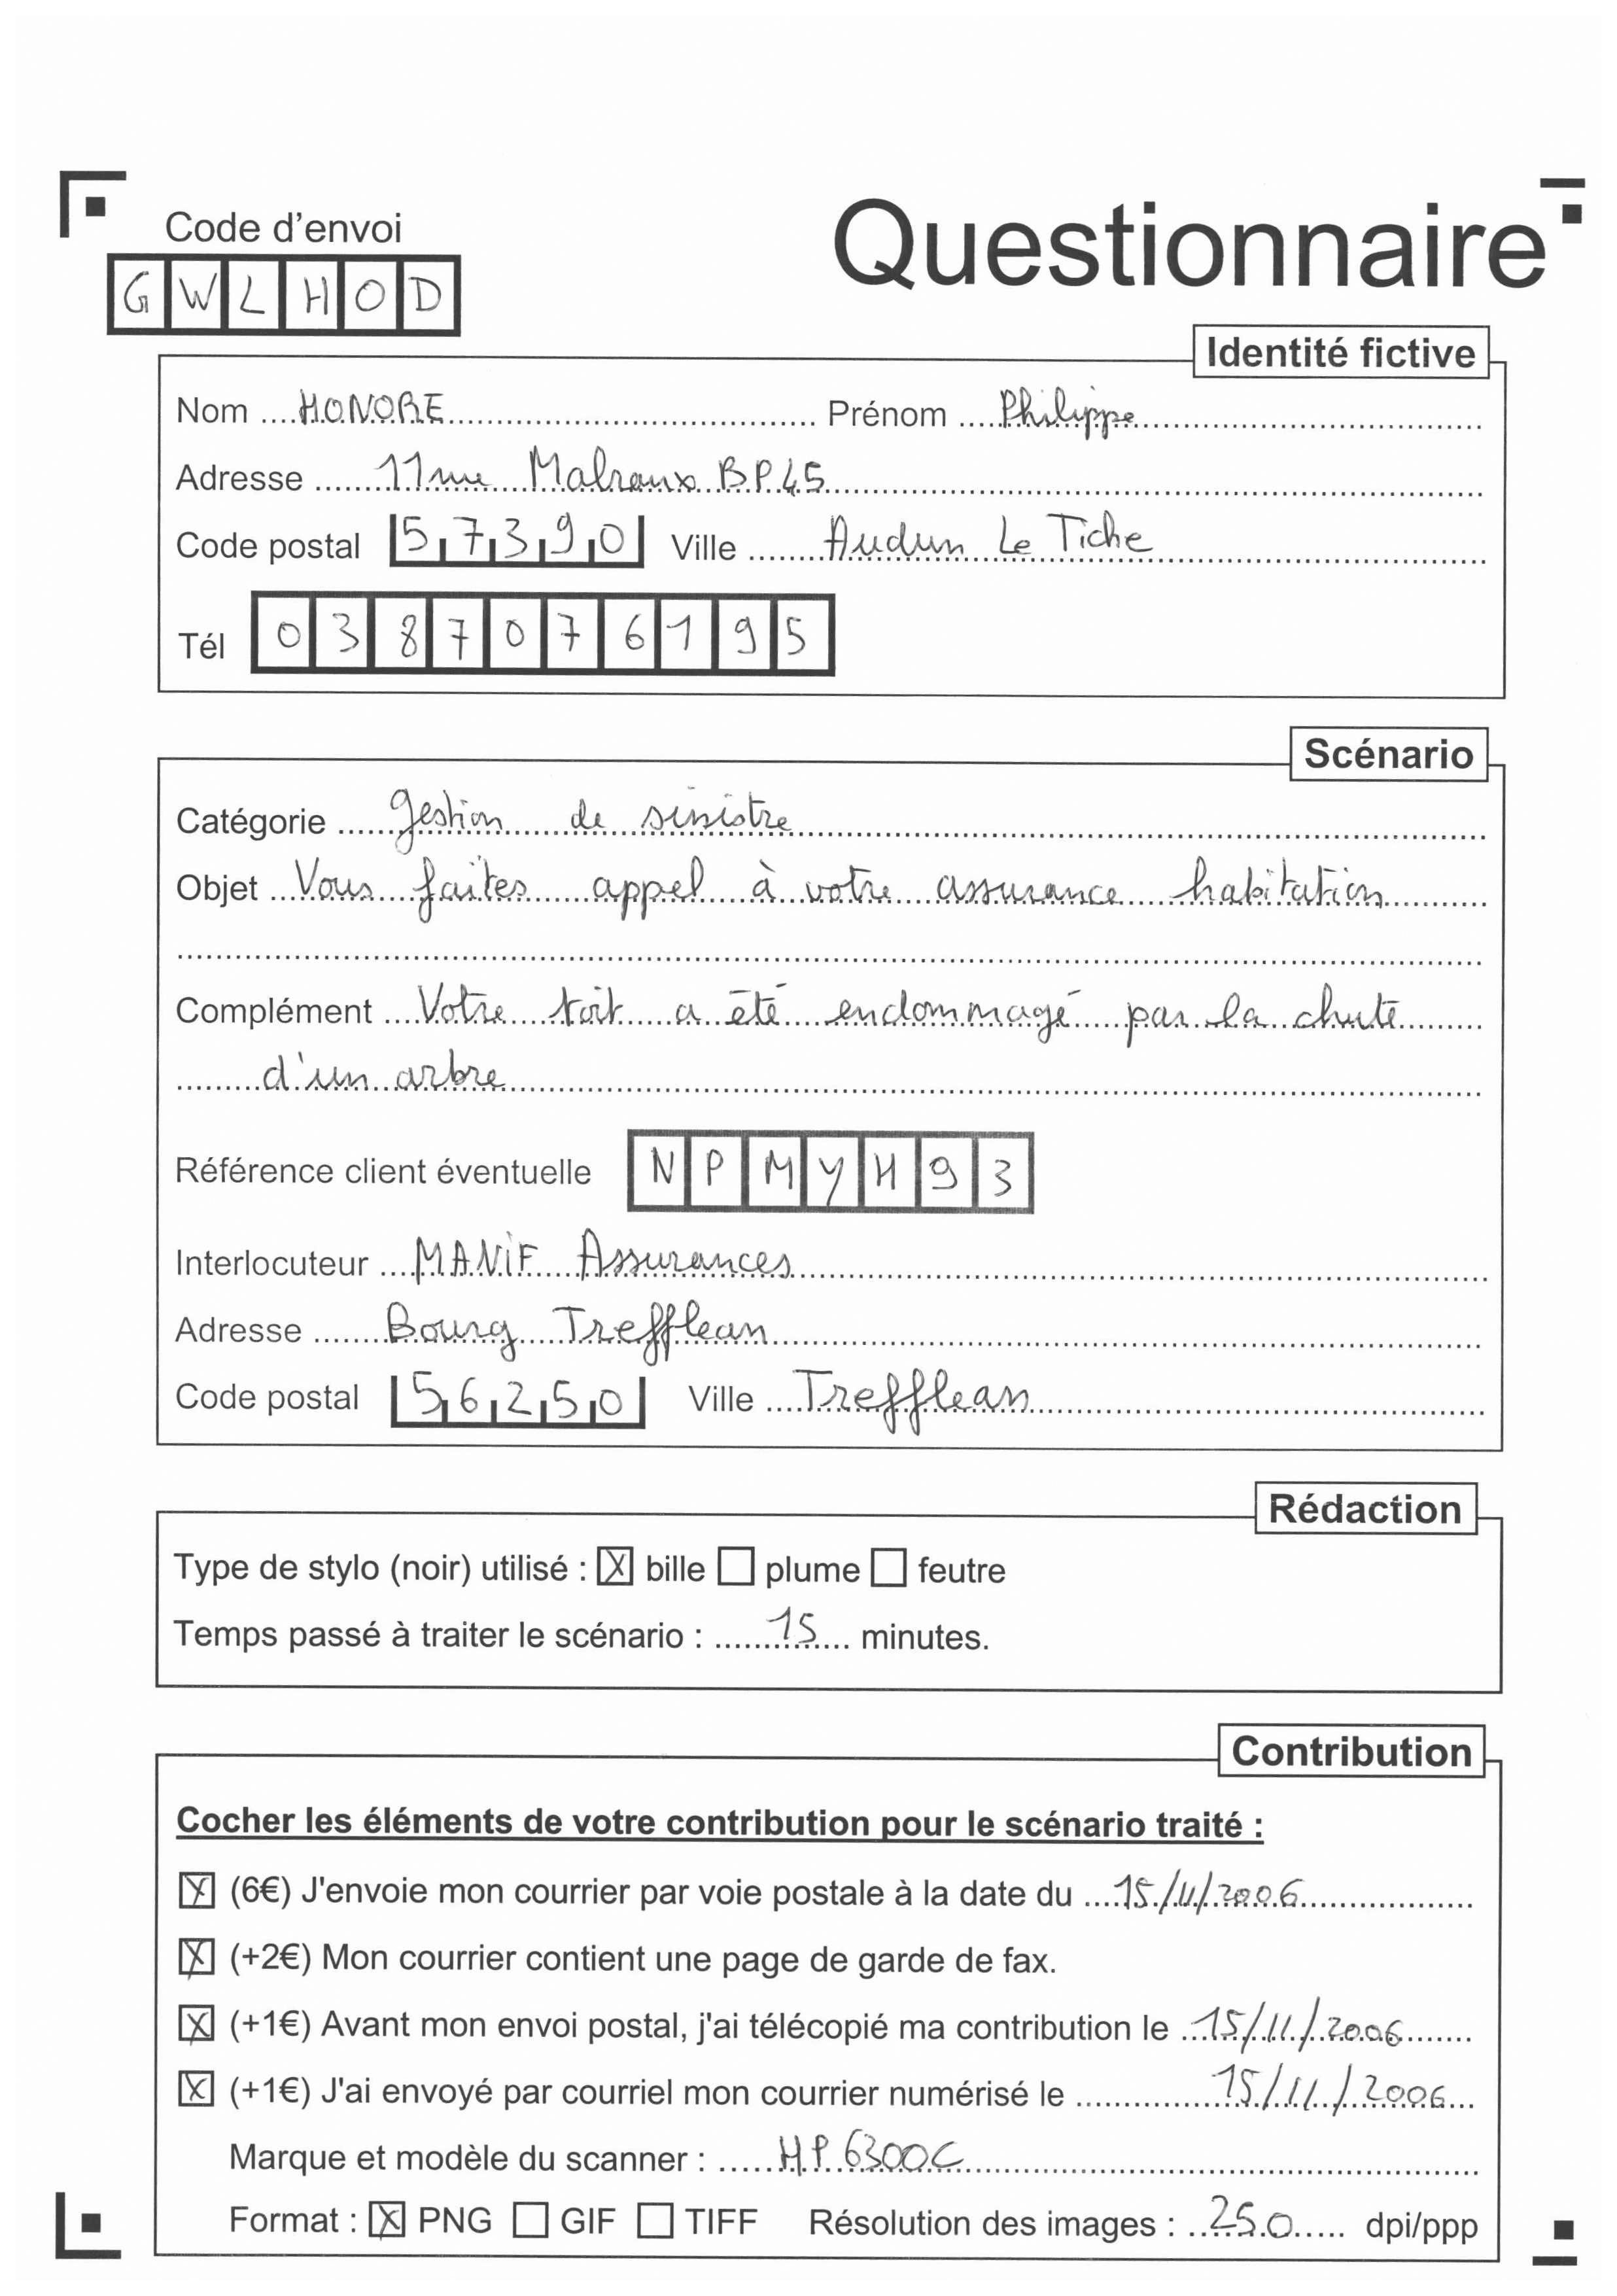 Code d'envoi
Questionnaire
G W L H O D
Identité fictive
Nom HONORE Prénom Philippe
Adresse 11 rue Malraux BP 45
Code postal 57390 Ville Audun Le Tiche
Tél 0387076195
Scénario
Catégorie gestion de sinistre
Objet Vous faites appel à votre assurance habitation
Complément Votre toit a été endommagé par la chute
d'un arbre
Référence client éventuelle NPMYH93
Interlocuteur MANIF Assurances
Adresse Bourg Trefflean
Code postal 56250 Ville Trefflean
Rédaction
Type de stylo (noir) utilisé : ☒ bille ☐ plume ☐ feutre
Temps passé à traiter le scénario : 15 minutes.
Contribution
Cocher les éléments de votre contribution pour le scénario traité :
☒ (6€) J'envoie mon courrier par voie postale à la date du 15/11/2006
☒ (+2€) Mon courrier contient une page de garde de fax.
☒ (+1€) Avant mon envoi postal, j'ai télécopié ma contribution le 15/11/2006
☒ (+1€) J'ai envoyé par courriel mon courrier numérisé le 15/11/2006
Marque et modèle du scanner : HP 6300C
Format : ☒ PNG ☐ GIF ☐ TIFF Résolution des images : 250 dpi/ppp